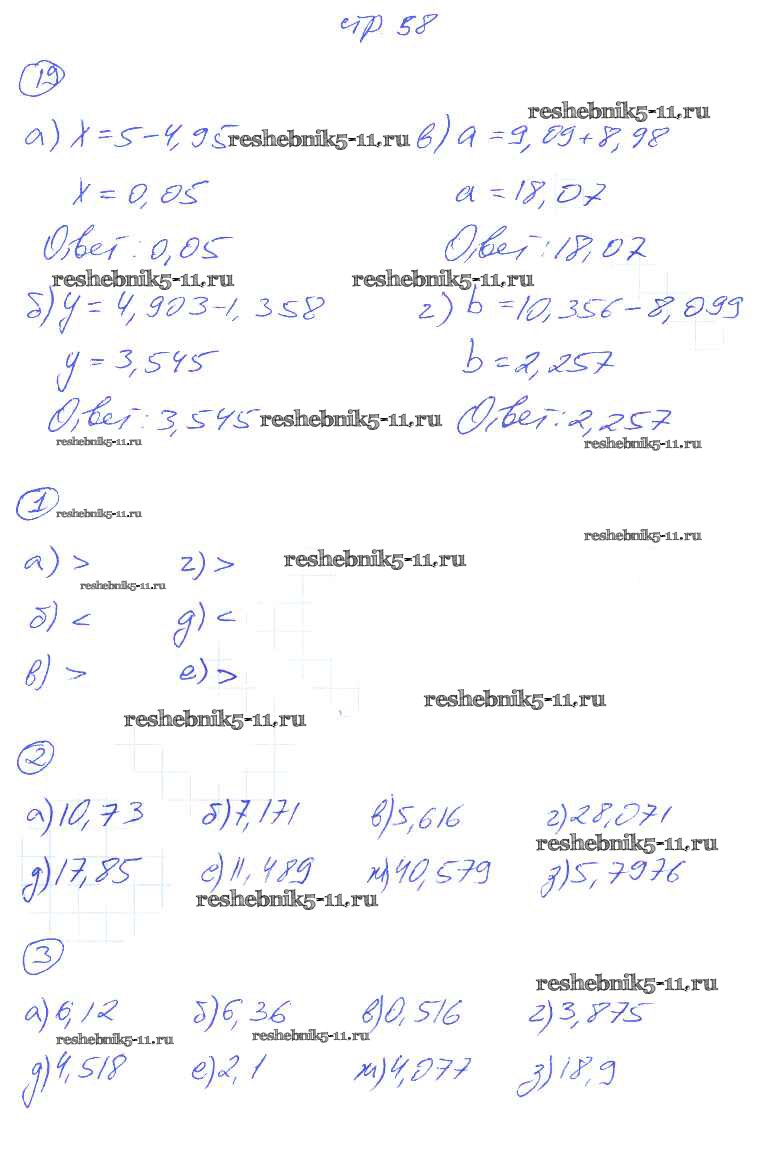 стр 58
19
а) x = 5 - 4,95 reshebnik5-11.ru в) a = 9,09 + 8,98 reshebnik5-11.ru
x = 0,05 a = 18,07
Ответ: 0,05 Ответ: 18,07
reshebnik5-11.ru reshebnik5-11.ru
б) y = 4,903 - 1,358 г) b = 10,356 - 8,099
y = 3,545 b = 2,257
Ответ: 3,545 reshebnik5-11.ru Ответ: 2,257
reshebnik5-11.ru reshebnik5-11.ru
1 reshebnik5-11.ru
reshebnik5-11.ru
а) > г) > reshebnik5-11.ru
reshebnik5-11.ru
б) < д) <
в) > е) >
reshebnik5-11.ru
reshebnik5-11.ru
2
а) 10,73 б) 7,171 в) 5,616 г) 28,071
reshebnik5-11.ru
д) 17,85 е) 11,489 ж) 40,579 з) 5,7976
reshebnik5-11.ru
3
reshebnik5-11.ru
а) 6,12 б) 6,36 в) 0,516 г) 3,875
reshebnik5-11.ru reshebnik5-11.ru
д) 4,518 е) 2,1 ж) 4,077 з) 18,9